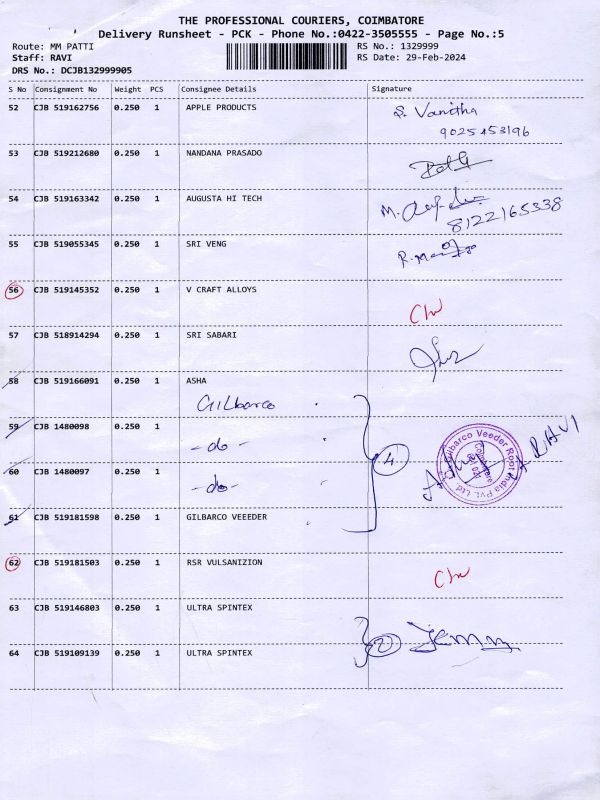 THE PROFESSIONAL COURIERS, COIMBATORE
Delivery Runsheet - PCK - Phone No.:0422-3505555 - Page No.:5
Route: MM PATTI
Staff: RAVI
DRS No.: DCJB132999905
RS No.: 1329999
RS Date: 29-Feb-2024
S No Consignment No Weight PCS Consignee Details Signature
52 CJB 519162756 0.250 1 APPLE PRODUCTS S. Vanitha
9025453196
53 CJB 519212680 0.250 1 NANDANA PRASADO
54 CJB 519163342 0.250 1 AUGUSTA HI TECH M.
8122165338
55 CJB 519055345 0.250 1 SRI VENG
56 CJB 519145352 0.250 1 V CRAFT ALLOYS
57 CJB 518914294 0.250 1 SRI SABARI
58 CJB 519166091 0.250 1 ASHA
Gilbarco
59 CJB 1480098 0.250 1
-do-
60 CJB 1480097 0.250 1
-do-
4
Gilbarco Veeder Root India Pvt. Ltd.
61 CJB 519181598 0.250 1 GILBARCO VEEEDER
62 CJB 519181503 0.250 1 RSR VULSANIZION
63 CJB 519146803 0.250 1 ULTRA SPINTEX
2
64 CJB 519109139 0.250 1 ULTRA SPINTEX